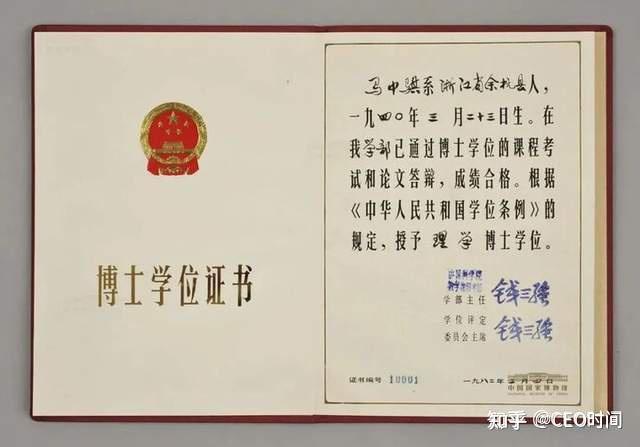 博士学位证书
马中骐系浙江省余杭县人，
一九四〇年三月二十三日生。在
我学部已通过博士学位的课程考
试和论文答辩，成绩合格。根据
《中华人民共和国学位条例》的
规定，授予理学博士学位。
中国科学院
学部主任 钱三强
学位评定
委员会主席 钱三强
证书编号 10001
一九八二年 月 日
中国国家博物馆
NATIONAL MUSEUM OF CHINA
知乎 @CEO时间